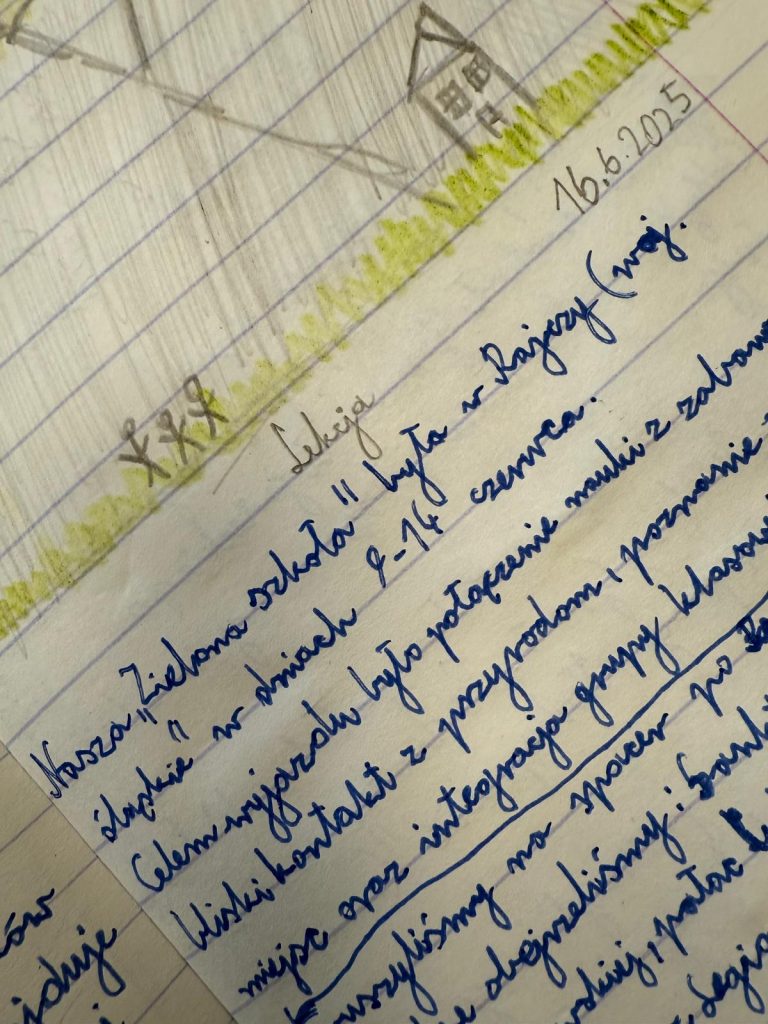 16.6.2025
Lekcja
Nasza "Zielona szkoła" była w Rajczy (woj.
śląskie" w dniach 9-14 czerwca.
Celem wyjazdu było połączenie nauki z zabaw
bliski kontakt z przyrodom, poznanie
miejsc oraz integracja grupy klasowe
ruszyliśmy na spacer po
obejrzeliśmy:
skiej, pałac
Legio
ów
jduje